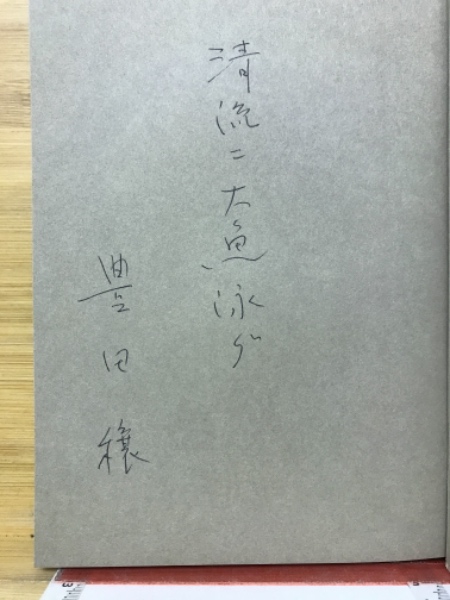 清流ニ大魚泳グ
豊田穣